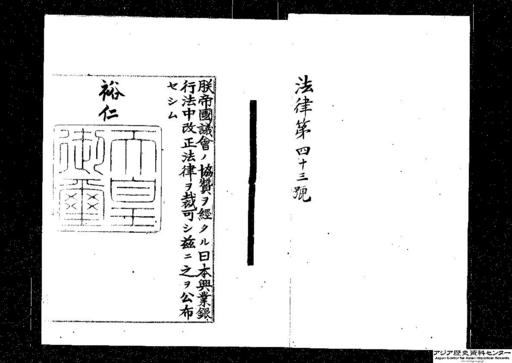 法律第四十三號
朕帝國議會ノ協贊ヲ經タル日本興業銀
行法中改正法律ヲ裁可シ茲ニ之ヲ公布
セシム
裕仁
天皇
御璽
アジア歴史資料センター
Japan Center for Asian Historical Records